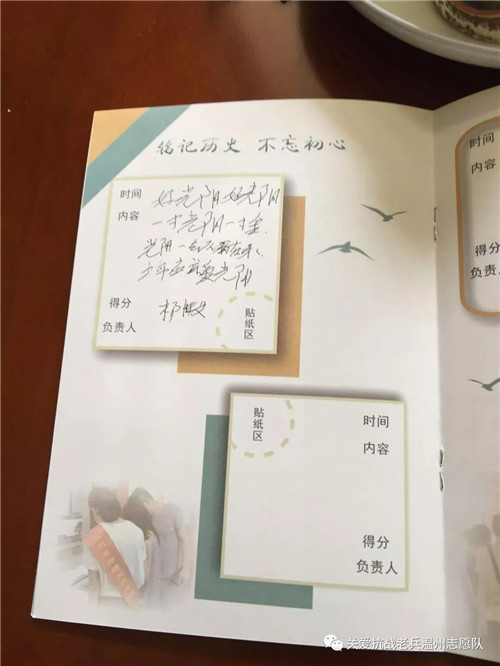 铭记历史 不忘初心
时间 好光阴好光阴
内容 一寸光阴一寸金
光阴一去不再来
少年应 光阴
得分
负责人
贴纸区
贴纸区
时间
内容
得分
负责人
时间
内容
得分
负责人
关爱抗战老兵温州志愿队